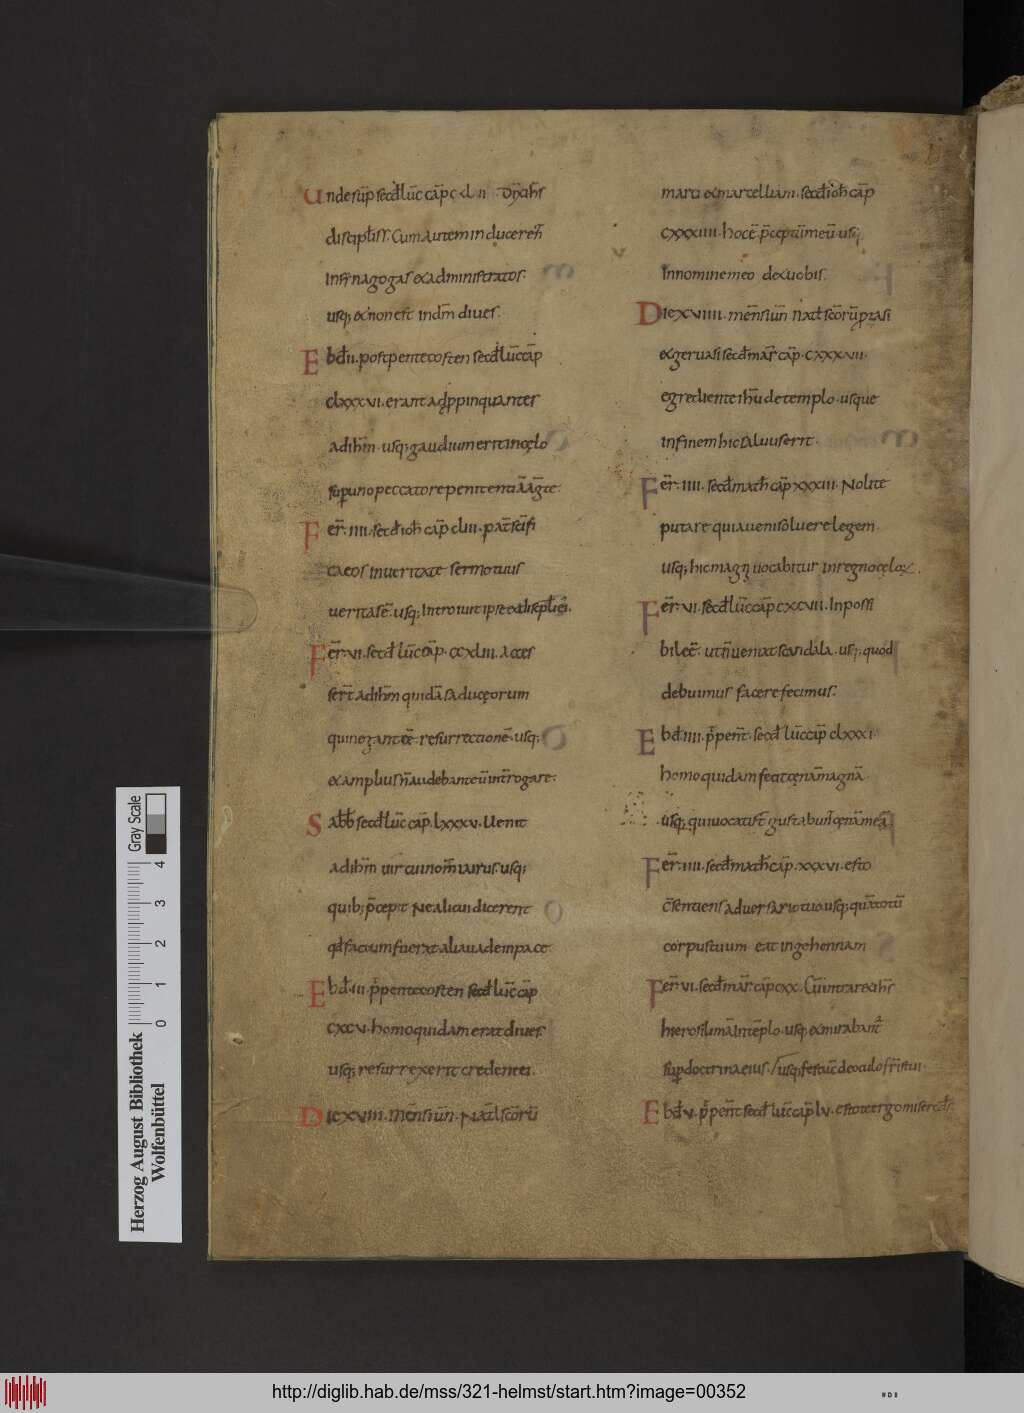 Unde sup̄ secd̄ luc̄ cap̄ c
discipl̄is s̄. Cum autem inducerent
in synagogas & ad ministratos
usq; & non est in dm̄ dives.
Ebd̄. ii. post pentecosten secd̄ luc̄ cap̄
clxxxvi. erant adp̄pinquantes
ad ihm̄ usq; gaudium erit in cęlo
sup̄ uno peccatore penitentiā āg̅te.
Fer̄. iiii. secd̄ ioh̄ cap̄ cliii. pat̄ sc̄ifi
ca eos in veritate sermo tuus
veritas ē. usq; Introivit ipse & discipl̄i ei.
Fer̄. vi. secd̄ luc̄ cap̄. ccxliii. acces
ser̄t ad ihm̄ quidā saducęorum
qui negant eē resurrectionē. usq;
& amplius n̄ audebant eū int̄rogare.
Sabb̄ secd̄ luc̄ cap̄. lxxxv. Uenit
ad ihm̄ vir cui nom̄ iairus. usq;
quib; p̄cepit Ne alicui dicerent
qd̄ factum fuerat alia uade in pace
Ebd̄. iii. p̄ pentecosten secd̄ luc̄ cap̄
cxcv. homo quidam erat dives.
usq; resurrexerit credentei.
Die xviii. mēn̄s iun̄. Nat̄l sc̄orū
marci & marcelliani. secd̄ ioh̄ cap̄
cxxxiiii. hoc ē p̄ceptū meū usq;
In nomine meo d& vobis.
Die xviiii. mēn̄s iun̄ nat̄l sc̄orū p̄tasi
& geruasi secd̄ mar̄ cap̄. cxxxvii.
egrediente ihu̅ de templo. usque
in finem hic saluus erit.
Fer̄. iiii. secd̄ math̄ cap̄ xxxiii. Nolite
putare quia veni solvere legem
usq; hic magn̄ vocabitur in regno cęlor̄.
Fer̄. vi. secd̄ luc̄ cap̄ cxcvii. Inpossi
bile ē. ut n̄ veniat scandala. usq; quod
debuimus facere fecimus.
Ebd̄ iiii. p̄ pent̄. secd̄ luc̄ cap̄ clxxxi.
homo quidam fecit cęnā magnā.
usq; qui vocati st̄ gustabun̄t cęnā meā.
Fer̄. iiii. secd̄ math̄ cap̄. xxxvi. esto
c̄sentiens adversario tuo usq; quā totū
corpus tuum eat in gehennam
Fer̄. vi. secd̄ mar̄ cap̄ cxx. Cū intrar& ih̄s
hierosilimā in tēplo. usq; & mirabant̄
sup̄ doctrina eius. usq; festuc̄ de oculo fr̄is tui.
Ebd̄. v. p̄ pent̄ secd̄ luc̄ cap̄ lv. estote ergo misericds.
Herzog August Bibliothek
Wolfenbüttel
0 1 2 3 4
Gray Scale
http://diglib.hab.de/mss/321-helmst/start.htm?image=00352